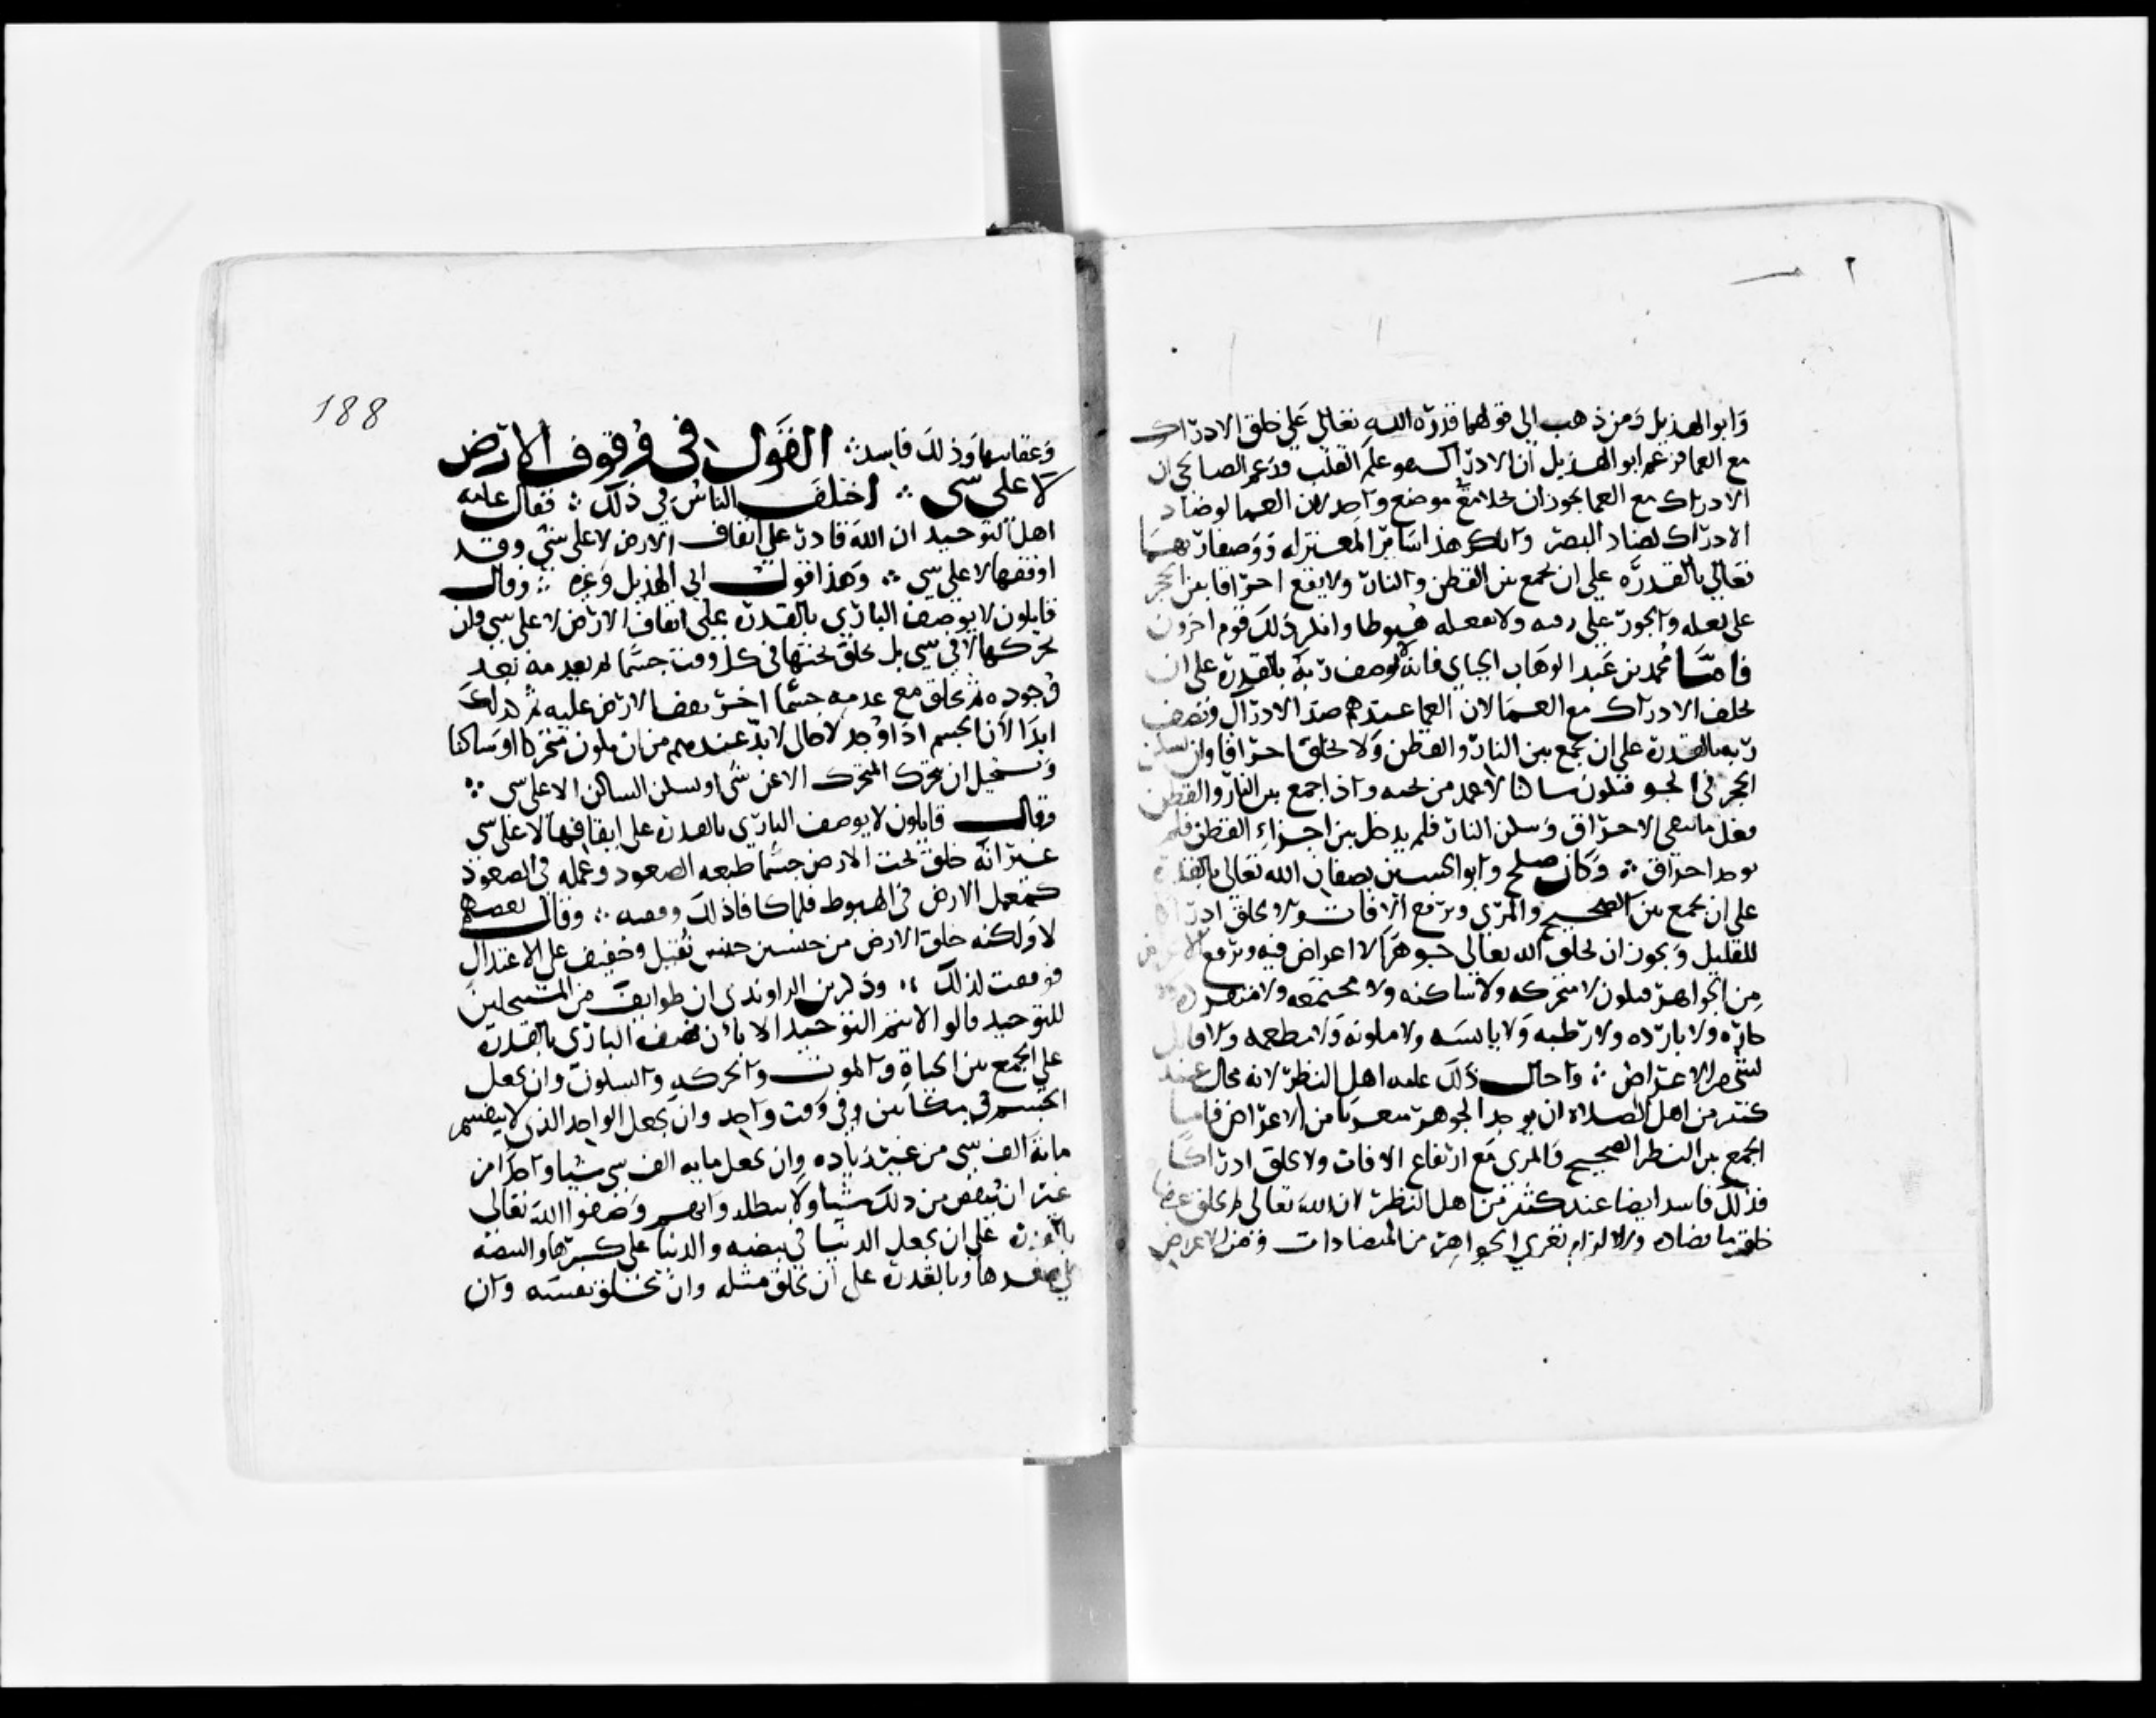 وابو الهذيل ومن ذهب الى قولهما قدرة الله تعالى على خلق الادراك
مع العما فزعم ابو الهذيل ان الادراك هو علم القلب وزعم الصالحي ان
الادراك مع العما يجوز ان يحلا مع موضع واحد لان العما لو ضاد
الادراك لضاد البصر وانكر هذا سائر المعتزله ووصفا ربهما
تعالى بالقدره على ان يجمع بين القطن والنار ولا يقع احتراقا بين الحجر
على ثقله والجو على رقته ولا يفعله هبوطا وانكر ذلك قوم اخرون
فاما محمد بن عبد الوهاب الجباي فانه لا يوصف ربه بالقدرة على ان
يخلق الادراك مع العما لان العما عندهم ضد الادراك ويصف
ربه بالقدرة على ان يجمع بين النار والقطن ولا يخلق احتراقا وان يسكن
الحجر في الجو فيكون ساكنا لا عمد من تحته واذا جمع بين النار والقطن
فعل ما ينفي الاحتراق وسكن النار فلم يدخل بين اجزاء القطن فلم
يوجد احتراق ∴ وكان صلح وابو الحسين يصفان الله تعالى بالقدرة
على ان يجمع بين الصحيح والمري ويرفع الافات ولا يخلق ادراكا
للقليل ويجوزان يخلق الله تعالى جوهرا لا اعراض فيه ويرفع الاعراض
من الجواهر فيكون لا متحركه ولا ساكنه ولا مجتمعه ولا متفرقه ولا
حاره ولا بارده ولا رطبه ولا يابسه ولا ملونه ولا مطعمه ولا قابله
لشي من الاعراض ∴ واحال ذلك عامه اهل النظر لانه محال عند
كثير من اهل الصلاة ان يوجد الجوهر متعريا من الاعراض فاما
الجمع بين النظر الصحيح والمري مع ارتفاع الافات ولا يخلق ادراكا
فذلك فاسد ايضا عند كثير من اهل النظر لان الله تعالى لم يخلق عرضا
خلق ما يضاده والا لزام تعري الجواهر من المتضادات ومن الاعراض
188
وعقابها وذلك فاسد ∴ القول في وقوف الارض
لا على شي ∴ اختلف الناس في ذلك ∴ فقال عامه
اهل التوحيد ان الله قادر على ايقاف الارض لا على شي وقد
اوقفها لا على شي ∴ وهذا قول ابي الهذيل وغيره ∴ وقال
قايلون لا يوصف الباري بالقدرة على ايقاف الارض لا على شي وان
يحركها لا في شي بل يخلق تحتها في كل وقت جسما ثم يعدمه بعد
وجوده ثم يخلق مع عدمه جسما اخر يقف الارض عليه ثم كذلك
ابدا لان الجسم اذا وجد لا محال لا بد عندهم من ان يكون متحركا او ساكنا
ويستحيل ان يتحرك المتحرك الا عن شي او يسكن الساكن الا على شي ∴
وقال قايلون لا يوصف الباري بالقدرة على ايقافها لا على شي
غير انه خلق تحت الارض جسما طبعه الصعود وعمله في الصعود
كعمل الارض في الهبوط فلما كافا ذلك وقفت ∴ وقال بعضهم
لا ولكنه خلق الارض من جنسين جنس ثقيل وخفيف على الاعتدال
فوقفت لذلك ∴ وذكر بن الراوندي ان طوايف من المنتحلين
للتوحيد قالوا لا يتم التوحيد الا بان نصف الباري بالقدرة
على الجمع بين الحياة والموت والحركه والسكون وان يجعل
الجسم في مكانين وفي وقت واحد وان يجعل الواحد الذي لا ينقسم
مائة الف شي من غير زياده وان يجعل مايه الف شي شيا واحدا من
غير ان ينقص من ذلك شيا ولا يبطله وانهم وصفوا الله تعالى
بالقدرة على ان يجعل الدنيا في بيضه والدنيا على كبرها والبيضه
على صغرها وبالقدرة على ان يخلق مثله وان يخلق نفسه وان